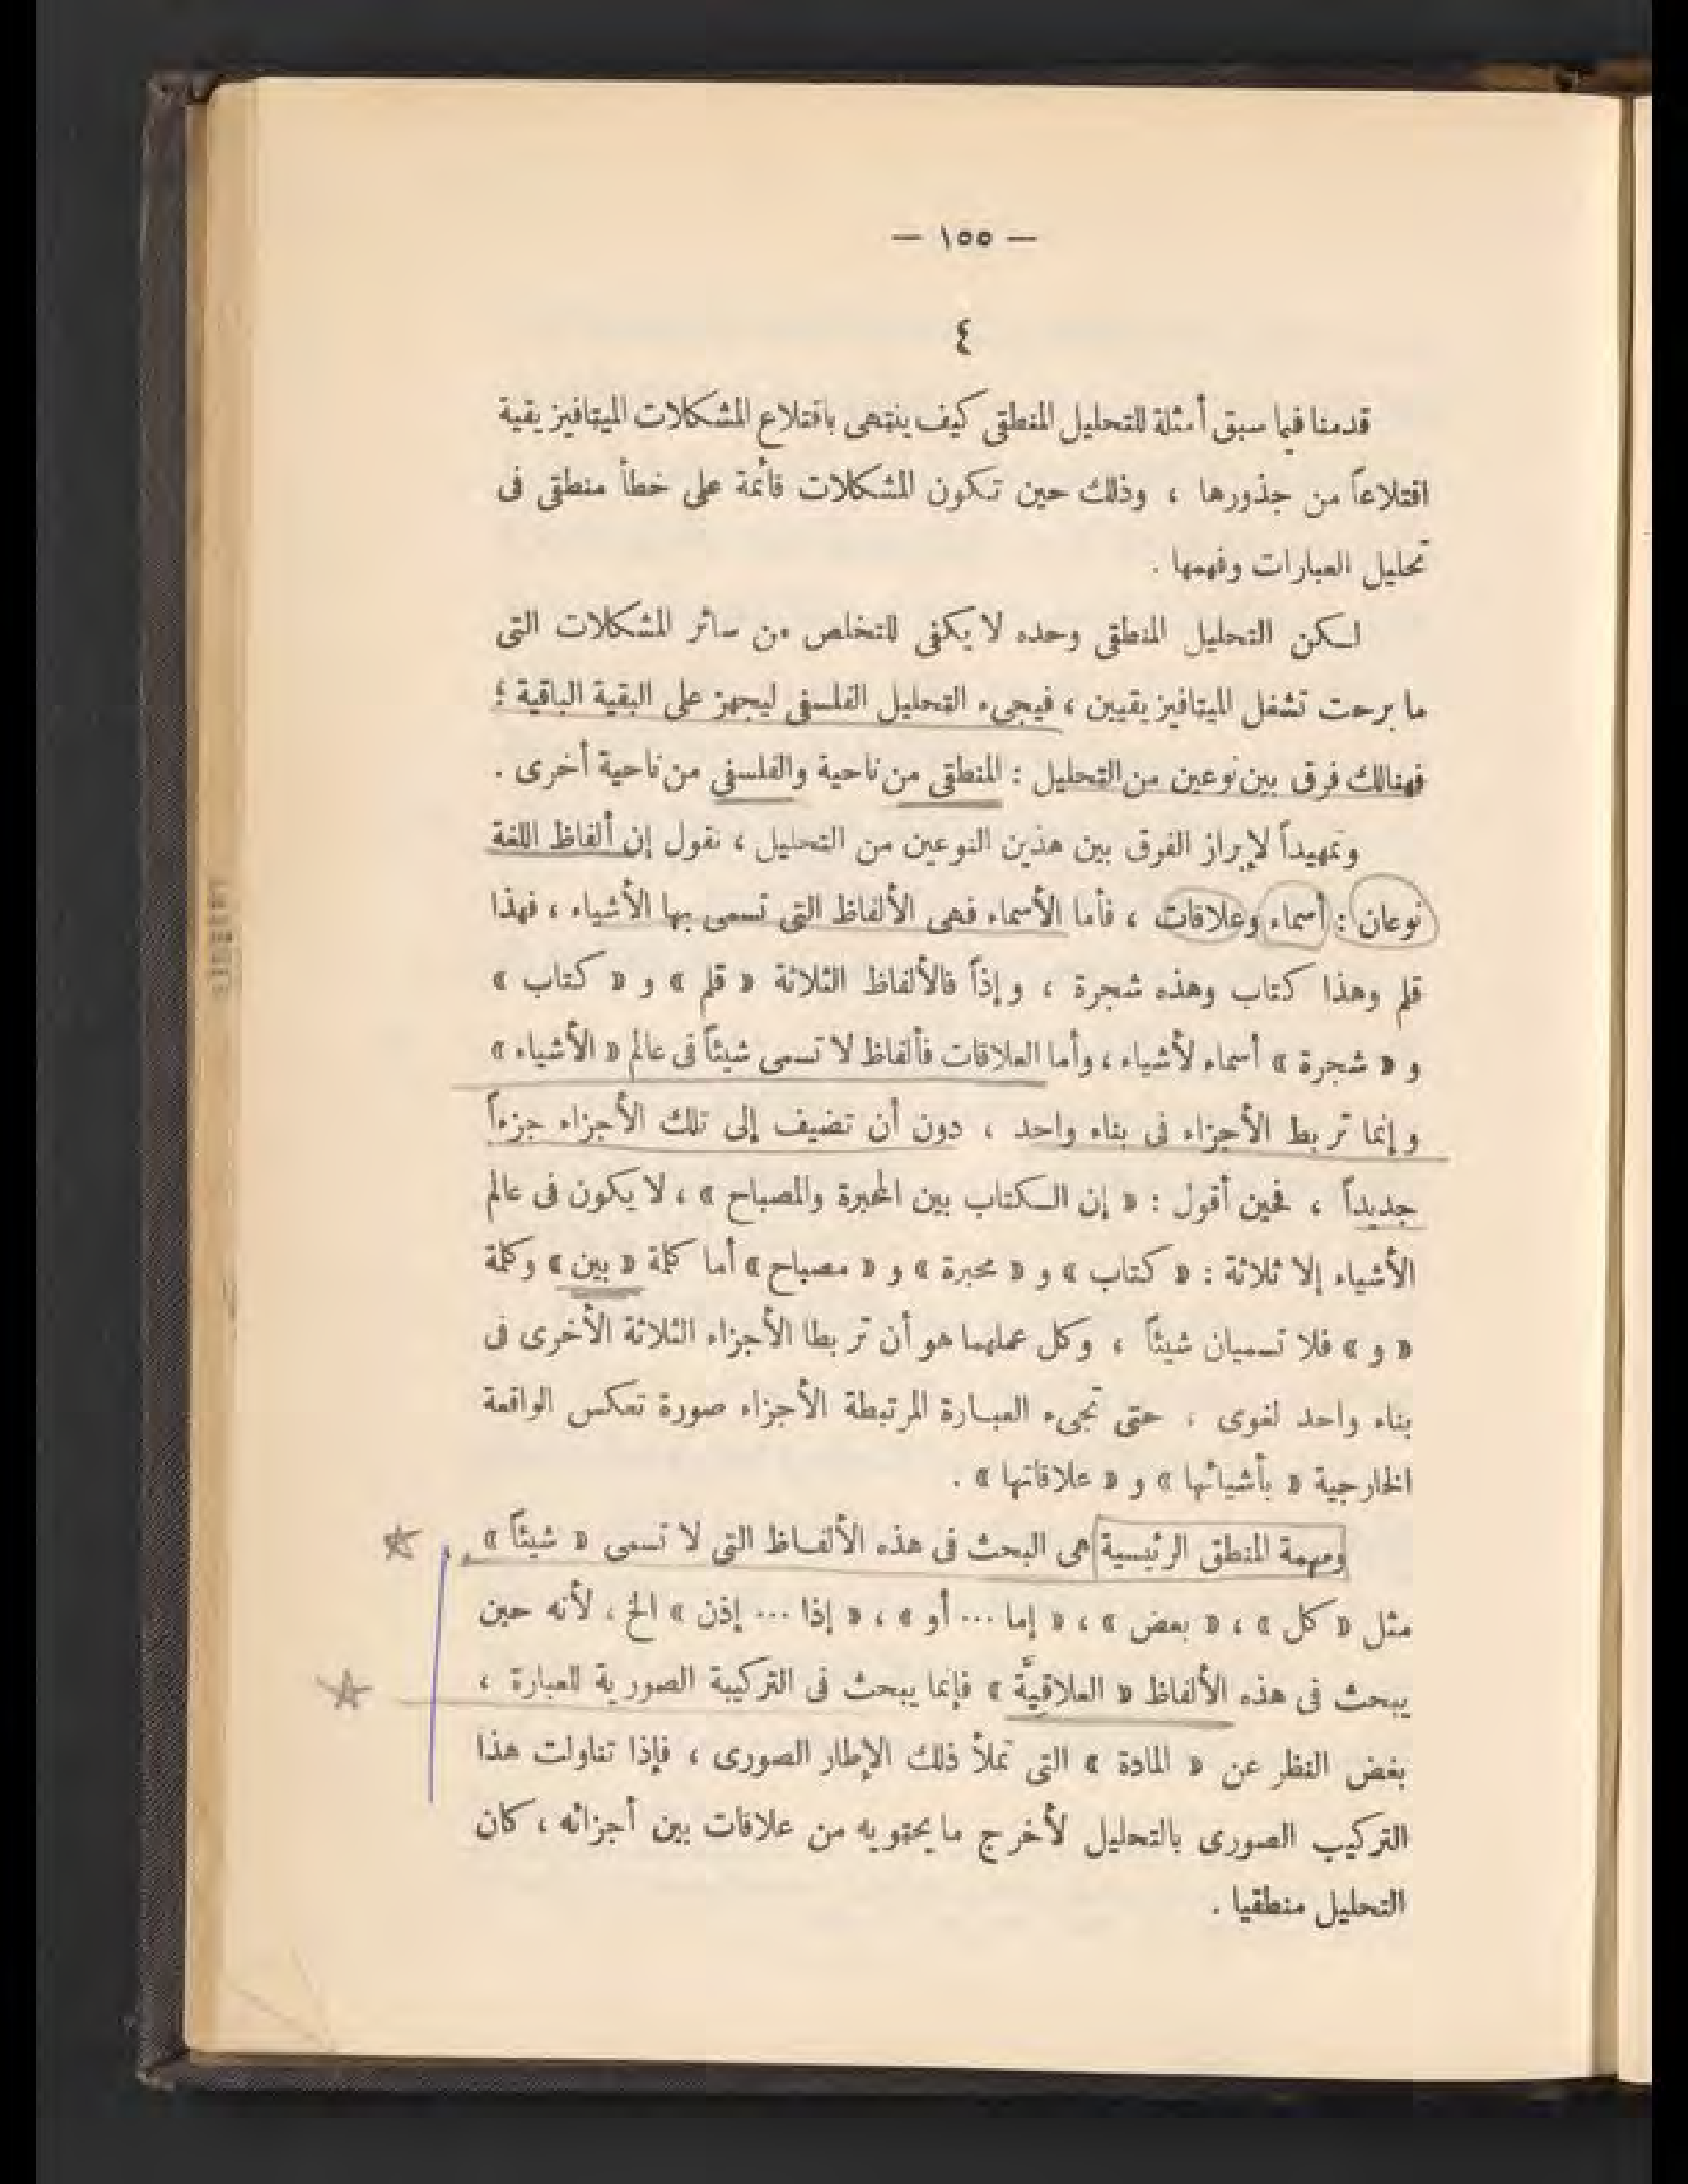 — ١٥٥ —
٤
قدمنا فيما سبق أمثلة للتحليل المنطقى كيف ينتهى باقتلاع المشكلات الميتافيزيقية
اقتلاعاً من جذورها ، وذلك حين تكون المشكلات قائمة على خطأ منطقى فى
تحليل العبارات وفهمها .
لكن التحليل المنطقى وحده لا يكفى للتخلص من سائر المشكلات التى
ما برحت تشغل الميتافيزيقيين ، فيجىء التحليل الفلسفى ليجهز على البقية الباقية ؛
فهنالك فرق بين نوعين من التحليل : المنطقى من ناحية والفلسفى من ناحية أخرى .
وتمهيداً لإبراز الفرق بين هذين النوعين من التحليل ، نقول إن ألفاظ اللغة
نوعان : أسماء وعلاقات ، فأما الأسماء فهى الألفاظ التى تسمى بها الأشياء ، فهذا
قلم وهذا كتاب وهذه شجرة ، وإذاً فالألفاظ الثلاثة « قلم » و « كتاب »
و « شجرة » أسماء لأشياء ، وأما العلاقات فألفاظ لا تسمى شيئاً فى عالم « الأشياء »
وإنما تربط الأجزاء فى بناء واحد ، دون أن تضيف إلى تلك الأجزاء جزءاً
جديداً ، فحين أقول : « إن الكتاب بين المحبرة والمصباح » ، لا يكون فى عالم
الأشياء إلا ثلاثة : « كتاب » و « محبرة » و « مصباح » أما كلمة « بين » وكلمة
« و » فلا تسميان شيئاً ، وكل عملهما هو أن تربطا الأجزاء الثلاثة الأخرى فى
بناء واحد لغوى ، حتى تجىء العبارة المرتبطة الأجزاء صورة تعكس الواقعة
الخارجية « بأشيائها » و « علاقاتها » .
ومهمة المنطق الرئيسية هى البحث فى هذه الألفاظ التى لا تسمى « شيئاً »
مثل « كل » ، « بعض » ، « إما ... أو » ، « إذا ... إذن » الخ ، لأنه حين
يبحث فى هذه الألفاظ « العلاقيَّة » فإنما يبحث فى التركيبة الصورية للعبارة ،
بغض النظر عن « المادة » التى تملأ ذلك الإطار الصورى ، فإذا تناولت هذا
التركيب الصورى بالتحليل لأخرج ما يحتويه من علاقات بين أجزائه ، كان
التحليل منطقيا .